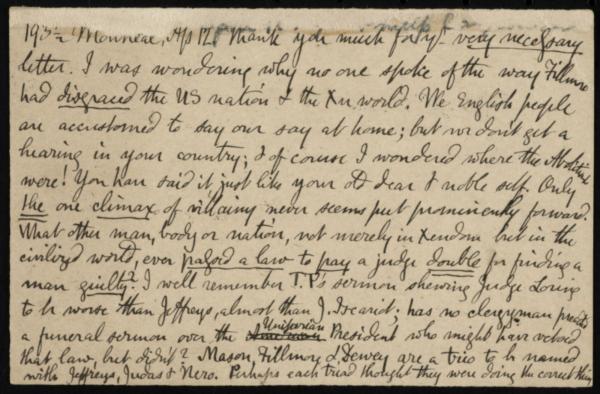 Monneau, Ap 12. Thank you much for yr very necessary
letter. I was wondering why no one spoke of the way Fillmore
had disgraced the US nation & the Xn world. We English people
are accustomed to say our say at home; but we don't get a
hearing in your country; & of course I wondered where the Abolitists
were! You have said it just like your dear & noble self. Only
the one climax of villainy never seems put prominently forward.
What other man, body or nation, not merely in Xendom but in the
civilizd world, ever passed a law to pay a judge double for finding a
man guilty? I well remember T.P's sermon shewing Judge Loring
to be worse than Jeffreys, almost than J. Iscariot; has no clergyman preachd
a funeral sermon over the Unitarian President who might have vetoed
that law, but didn't? Mason, Fillmore & Dewey are a trio to be named
with Jeffreys, Judas & Nero. Perhaps each triad thought they were doing the correct thing